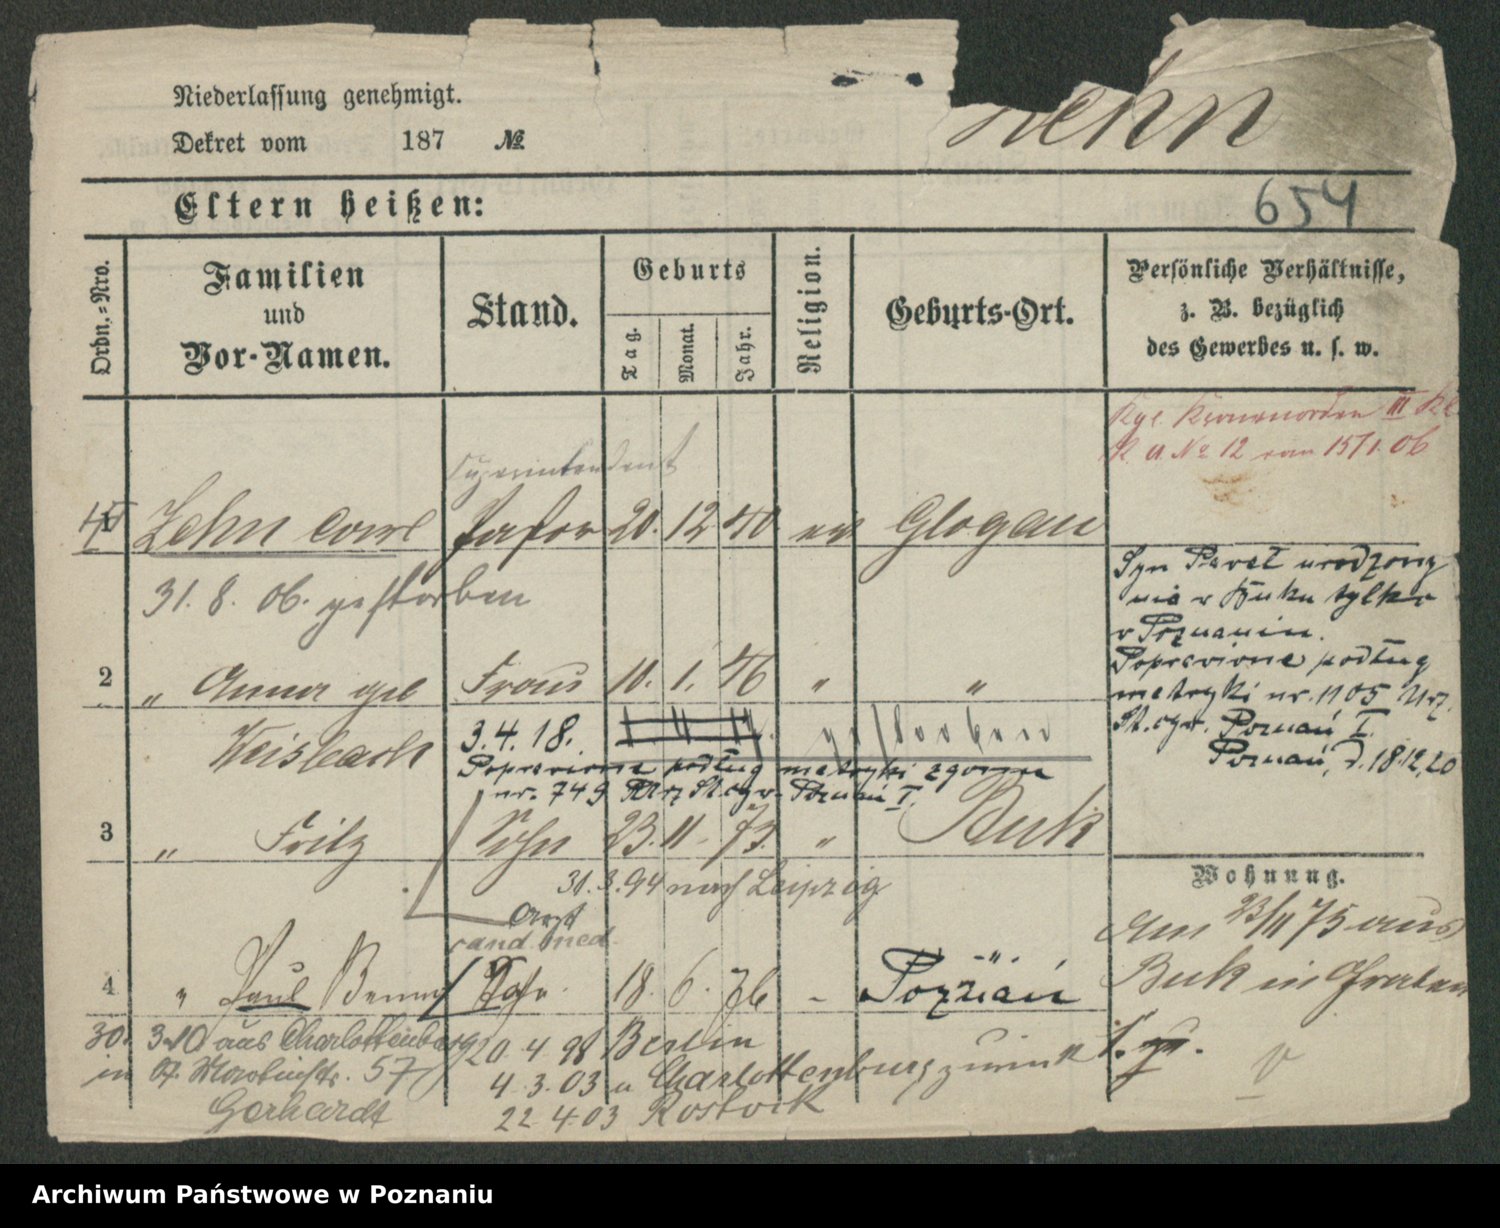 Niederlassung genehmigt.
Dekret vom 187 №
Zehn
654
Eltern heißen:
Ordn.-Nro.
Familien
und
Vor-Namen.
Stand.
Geburts
Tag.
Monat.
Jahr.
Religion.
Geburts-Ort.
Persönliche Verhältnisse,
z. B. bezüglich
des Gewerbes u. s. w.
Kgl. Kronenorden III Kl.
№ 12 vom 15/1. 06
Superintendent
Zehn Carl Pastor 20. 12 40 ev Glogau
31. 8. 06. gestorben
Syn Paweł urodzony
nie w Buku tylko
w Poznaniu.
Poprawione podług
metryki nr. 1105 Urz.
St. cyw. Poznań I.
Poznań, d. 18.12.20
2 „ Anna geb Frau 10. 1. 46 „ „
3. 4. 18. gestorben
Poprawione podług metryki zgonu
nr. 749 Urz St. cyw. Poznań I.
3 „ Fritz Sohn 23. 11. 73. „ Buk
31. 3. 94 nach Leipzig
Arzt
cand. med.
Wohnung.
Am 23/11 75 aus
Buk in Graben
4 „ Paul 18. 6. 76 - Poznań
30. 3.10 aus Charlottenburg 20. 4. 98 Berlin
in 57 4. 3. 03 u Charlottenburg zurück
Gerhardt 22. 4. 03 Rostock